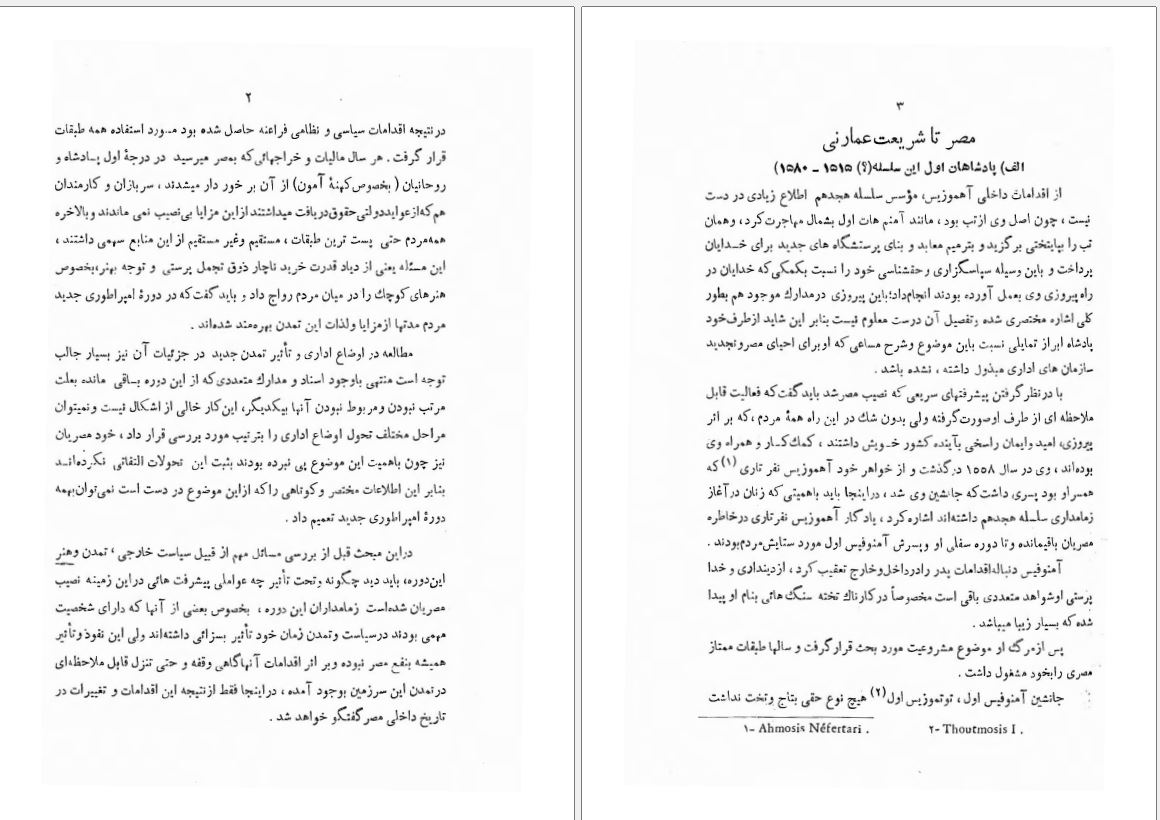 ۲
در نتیجه اقدامات سیاسی و نظامی فراعنه حاصل شده بود مورد استفاده همه طبقات
قرار گرفت . هر سال مالیات و خراجهائی که بمصر میرسید در درجهٔ اول پادشاه و
روحانیان ( بخصوص کهنهٔ آمون ) از آن بر خور دار میشدند ، سربازان و کارمندان
هم که از عواید دولتی حقوق دریافت میداشتند از این مزایا بی نصیب نمی ماندند و بالاخره
همه مردم حتی پست ترین طبقات ، مستقیم وغیر مستقیم از این منابع سهمی داشتند ،
این مسئله یعنی از دیاد قدرت خرید ناچار ذوق تجمل پرستی و توجه بهنر، بخصوص
هنرهای کوچك را در میان مردم رواج داد و باید گفت که در دورهٔ امپراطوری جدید
مردم مدتها از مزایا ولذات این تمدن بهره مند شده‌اند .
مطالعه در اوضاع اداری و تأثیر تمدن جدید در جزئیات آن نیز بسیار جالب
توجه است منتهی باوجود اسناد و مدارك متعددی که از این دوره باقی مانده بعلت
مرتب نبودن ومربوط نبودن آنها بیکدیگر، این کار خالی از اشکال نیست و نمیتوان
مراحل مختلف تحول اوضاع اداری را بترتیب مورد بررسی قرار داد ، خود مصریان
نیز چون باهمیت این موضوع پی نبرده بودند بثبت این تحولات التفاتی نکرده‌اند
بنابر این اطلاعات مختصر و کوتاهی را که از این موضوع در دست است نمی توان بهمه
دورهٔ امپراطوری جدید تعمیم داد .
در این مبحث قبل از بررسی مسائل مهم از قبیل سیاست خارجی ، تمدن وهنر
این دوره، باید دید چگونه وتحت تأثیر چه عواملی پیشرفت هائی در این زمینه نصیب
مصریان شده است زمامداران این دوره ، بخصوص بعضی از آنها که دارای شخصیت
مهمی بودند در سیاست وتمدن زمان خود تأثیر بسزائی داشته‌اند ولی این نفوذ وتأثیر
همیشه بنفع مصر نبوده وبر اثر اقدامات آنها گاهی وقفه و حتی تنزل قابل ملاحظه‌ای
در تمدن این سرزمین بوجود آمده ، در اینجا فقط از نتیجه این اقدامات و تغییرات در
تاریخ داخلی مصر گفتگو خواهد شد .
۳
مصر تا شریعت عمارنی
الف) پادشاهان اول این سلسله (؟) ۱۵۱۵ ــ ۱۵۸۰)
از اقدامات داخلی آهموزیس، مؤسس سلسله هجدهم اطلاع زیادی در دست
نیست ، چون اصل وی از تب بود ، مانند آمنم هات اول بشمال مهاجرت کرد ، وهمان
تب را بپایتختی برگزید و بترمیم معابد و بنای پرستشگاه های جدید برای خدایان
پرداخت و باین وسیله سپاسگزاری و حقشناسی خود را نسبت بکمکی که خدایان در
راه پیروزی وی بعمل آورده بودند انجام داد؛ باین پیروزی در مدارك موجود هم بطور
کلی اشاره مختصری شده وتفصیل آن درست معلوم نیست بنابر این شاید از طرف خود
پادشاه ابراز تمایلی نسبت باین موضوع وشرح مساعی که او برای احیای مصر وتجدید
سازمان های اداری مبذول داشته ، نشده باشد .
با در نظر گرفتن پیشرفتهای سریعی که نصیب مصر شد باید گفت که فعالیت قابل
ملاحظه ای از طرف او صورت گرفته ولی بدون شك در این راه همهٔ مردم ، که بر اثر
پیروزی، امید وایمان راسخی بآینده کشور خویش داشتند ، کمك کار و همراه وی
بوده‌اند ، وی در سال ۱۵۵۸ در گذشت و از خواهر خود آهموزیس نفر تاری (۱) که
همسر او بود پسری داشت که جانشین وی شد ، در اینجا باید باهمیتی که زنان در آغاز
زمامداری سلسله هجدهم داشته‌اند اشاره کرد ، یادگار آهموزیس نفر تاری در خاطره
مصریان باقیمانده و تا دوره سفلی او وپسرش آمنوفیس اول مورد ستایش مردم بودند .
آمنوفیس دنباله اقدامات پدر را در داخل وخارج تعقیب کرد ، از دینداری و خدا
پرستی او شواهد متعددی باقی است مخصوصاً در کارناك تخته سنگ هائی بنام او پیدا
شده که بسیار زیبا میباشد .
پس از مرگ او موضوع مشروعیت مورد بحث قرار گرفت و سالها طبقات ممتاز
مصری را بخود مشغول داشت .
جانشین آمنوفیس اول ، توتموزیس اول (۲) هیچ نوع حقی بتاج وتخت نداشت
۱- Ahmosis Néfertari . ۲- Thoutmosis I .